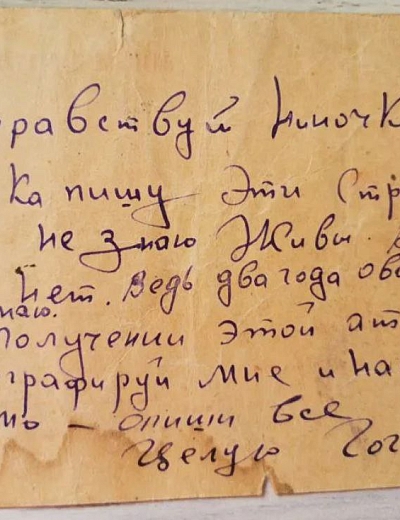 равствуй Ниночк
ка пишу эти стр
не знаю Живы. 
нет. Ведь два года ов
наю.
Получении этой атк
графируй мне и на
мо - опиши все
Целую Гог